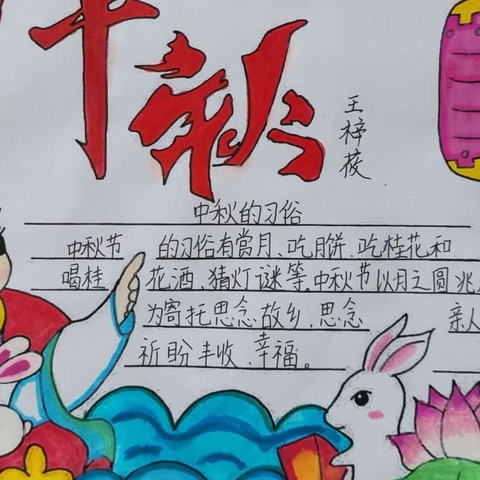 中秋
王梓筱
中秋的习俗
中秋节 的习俗有赏月、吃月饼、吃桂花和
喝桂 花酒、猜灯谜等。中秋节以月之圆兆
为寄托思念故乡,思念 亲人
祈盼丰收、幸福。